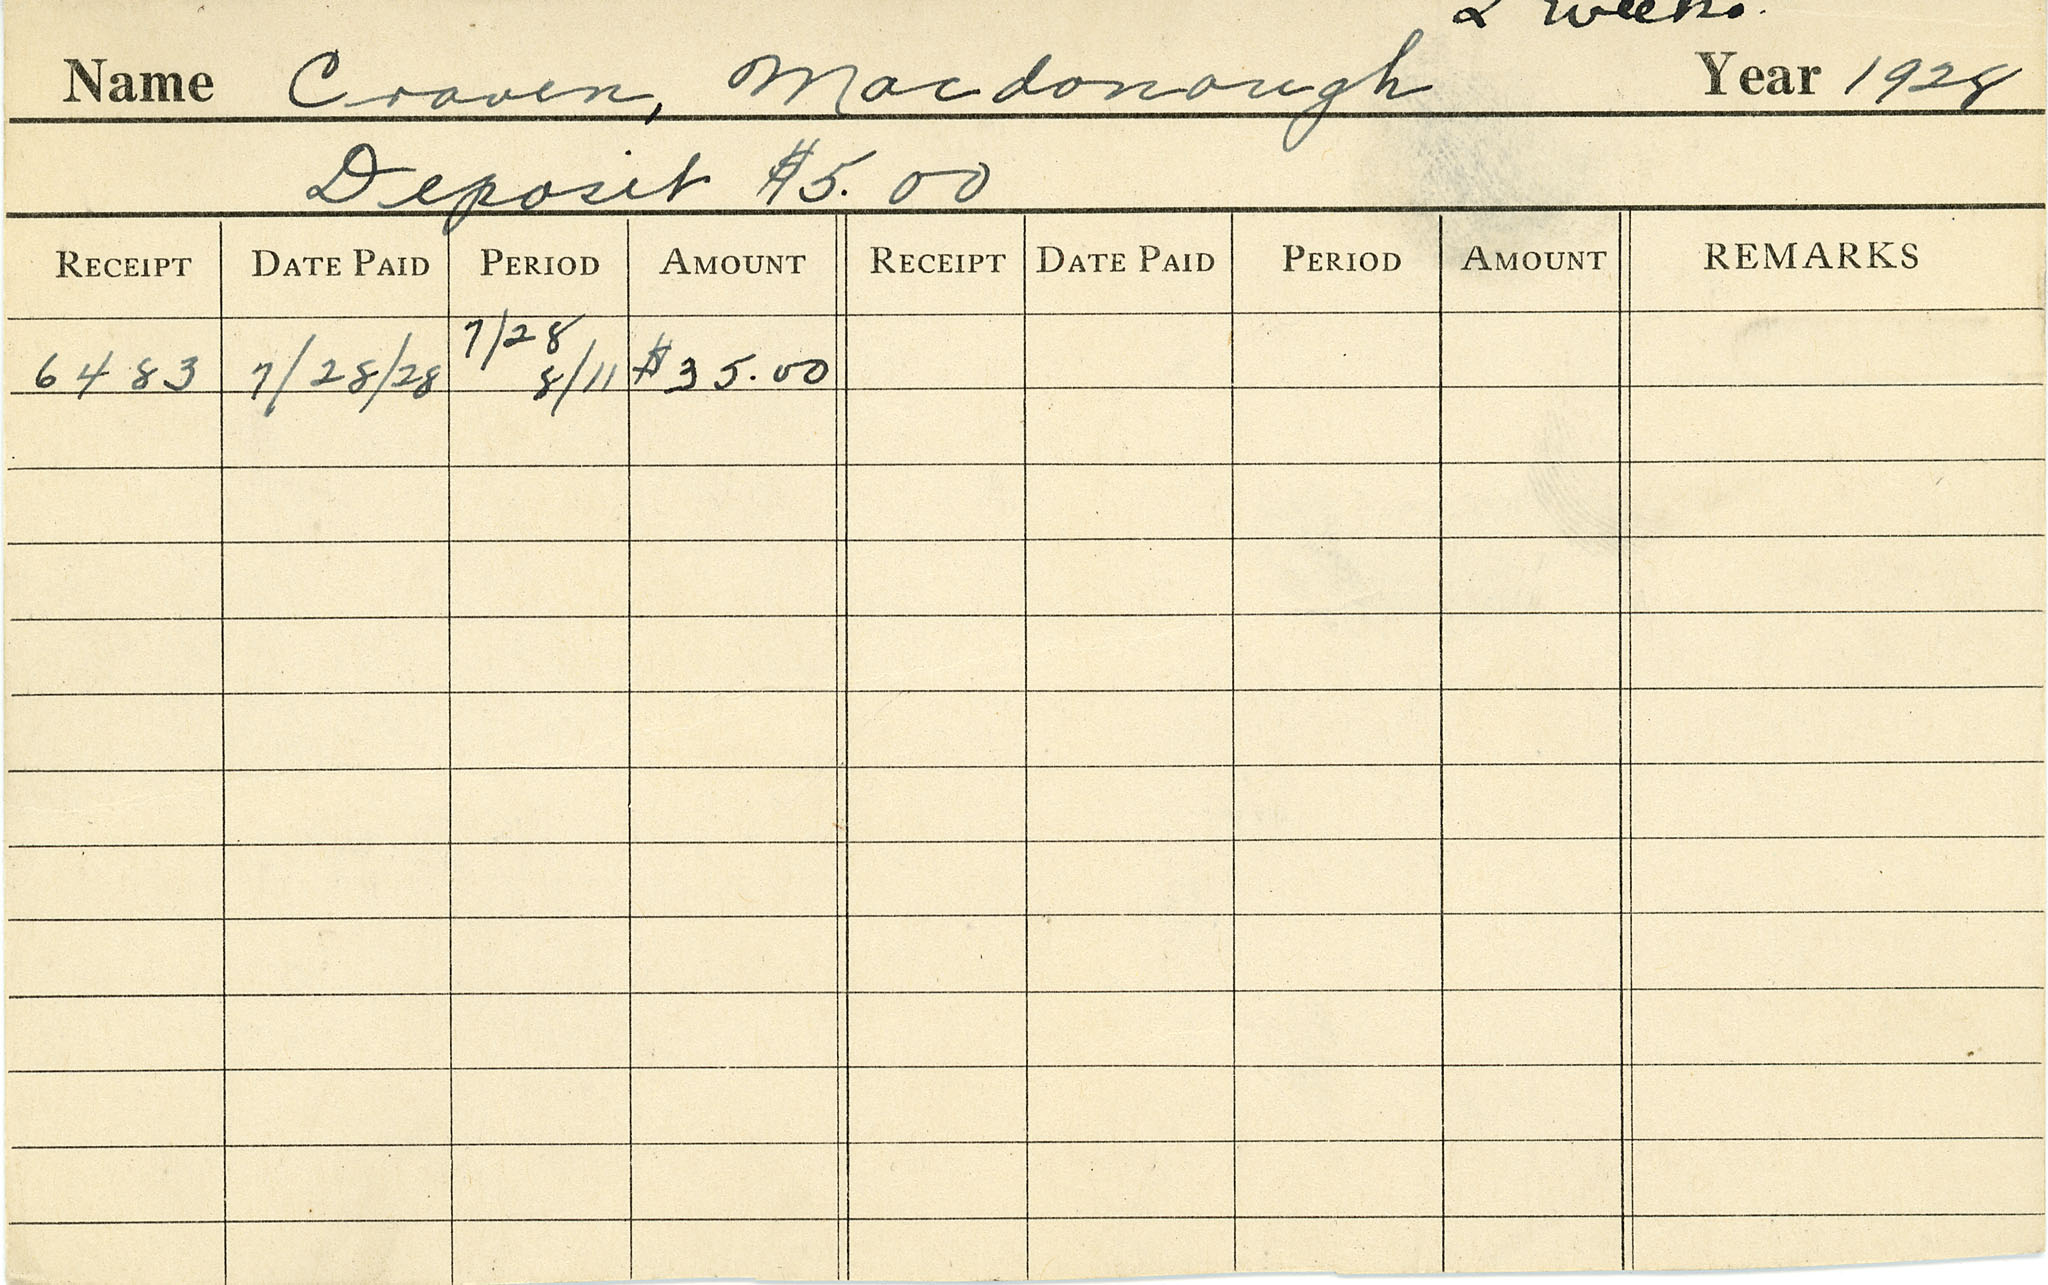 2 weeks.
Name Craven, Macdonough Year 1928
Deposit $5.00
RECEIPT DATE PAID PERIOD AMOUNT RECEIPT DATE PAID PERIOD AMOUNT REMARKS
7/28
6483 7/28/28 8/11 $35.00